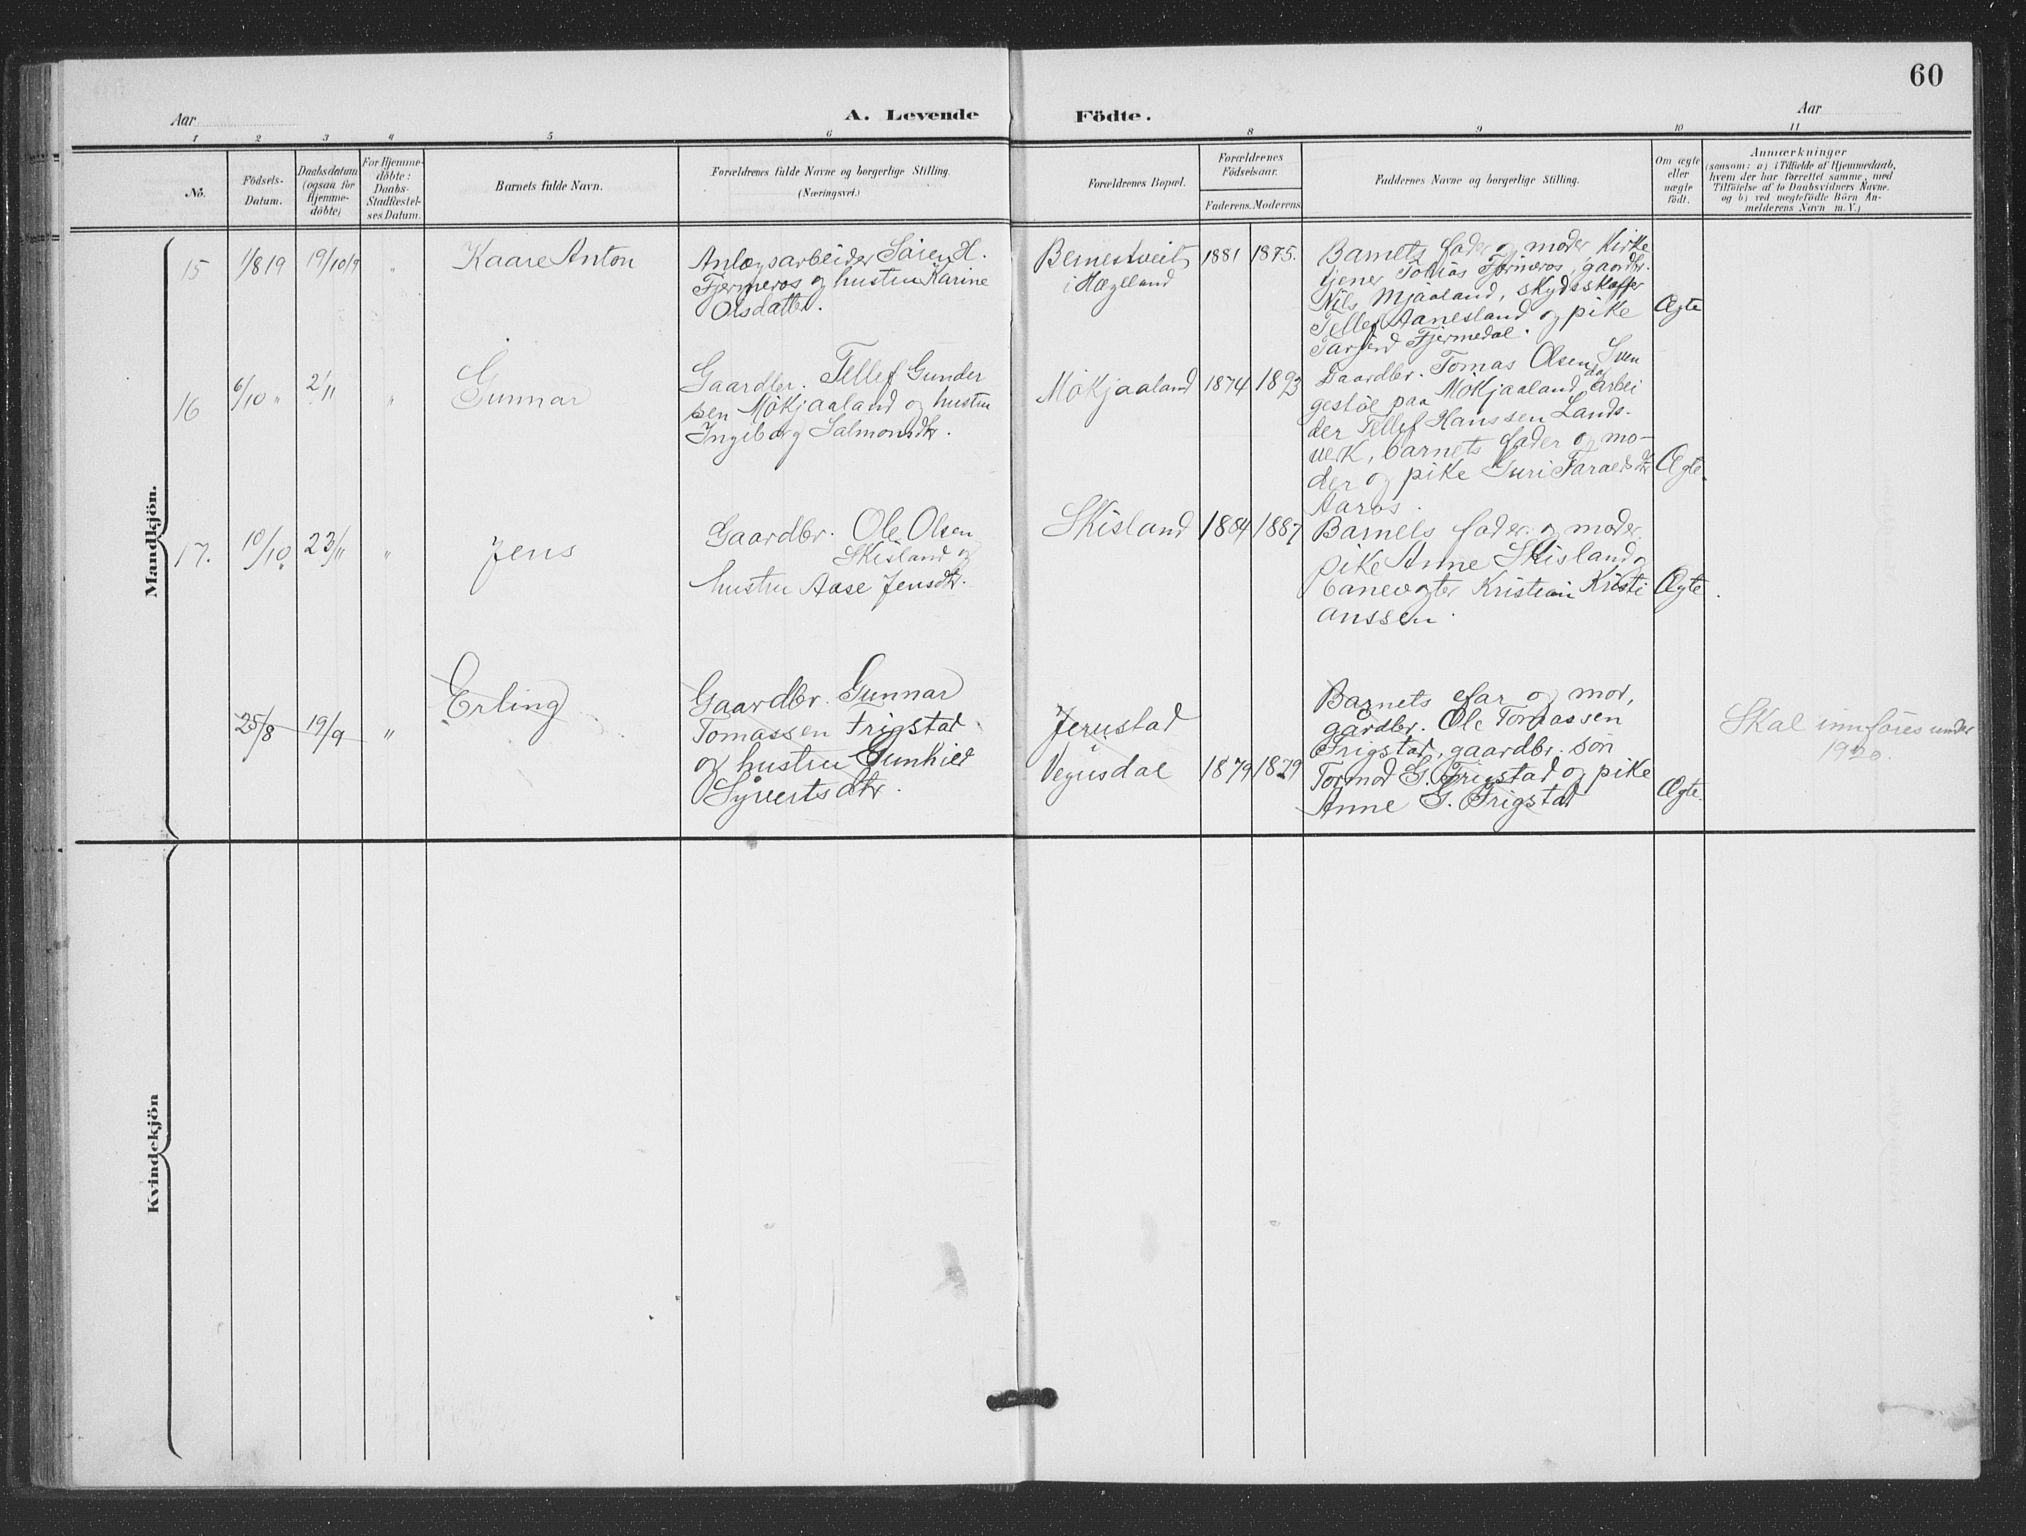 60
Aar
A. Levende
Födte.
Aar
1 2 3 4 5 6 8 9 10 11
No.
Födsels-
Datum.
Daabsdatum
(ogsaa for
Hjemme-
döbte)
For Hjemme-
döbte:
Daabs-
Stadfæstel-
ses Datum.
Barnets fulde Navn.
Forældrenes fulde Navne og borgerlige Stilling.
(Næringsvei.)
Forældrenes Bopæl.
Forældrenes
Födselsaar.
Faderens. Moderens.
Faddernes Navne og borgerlige Stilling.
Om ægte
eller
uægte
födt.
Anmærkninger
(saasom: a) i Tilfælde af Hjemmedaab,
hvem der har forrettet samme, med
Tilföielse af to Daabsvidners Navne.
og b) ved uægtefödte Börn An-
melderens Navn m. V.)
Mandkjön.
15
1/8 19
19/10 19
"
Kaare Anton
Anlægsarbeider Søren H.
Fjermeros og hustru Karine
Olsdatter.
Bernestveit
i Hægeland
1881
1875.
Barnets fader og moder, Kirke
tjener Tomas Fjermeros, gaardbr.
Nils Mjaaland, skydsskaffer
Tellef Aanesland og pike
Fjermedal.
Ægte
16
6/10 "
2/11
"
Gunnar
Gaardbr. Tellef Gunder
sen Møkjaaland og hustru
Ingeborg Salmonsdtr.
Møkjaaland
1874
1893
Gaardbr. Tomas Olsen Sven
gestøl paa Møkjaaland, arbei
der Tellef Hanssen Lands-
verk, barnets fader og mo-
der og pike Guri
Aaros.
Ægte.
17.
10/10
23/11
"
Jens
Gaardbr. Ole Olsen
Skisland og
hustru Aase Jensdtr.
Skisland
1884
1887
Barnets fader og moder,
pike Anne Skisland og
banevogter Kristian Kristi
anssen.
Ægte.
25/8
19/9
"
Erling
Gaardbr. Gunnar
Tomassen Frigstad
og hustru Gunhild
Syvertsdtr.
Jerustad
Vegusdal
1879
1879
Barnets far og mor,
gardbr. Ole Tomassen
Frigstad, gaardbr. søn
Tormod G. Frigstad og pike
Anne G. Frigstad
Ægte.
Skal innføres under
1920.
Kvindekjön